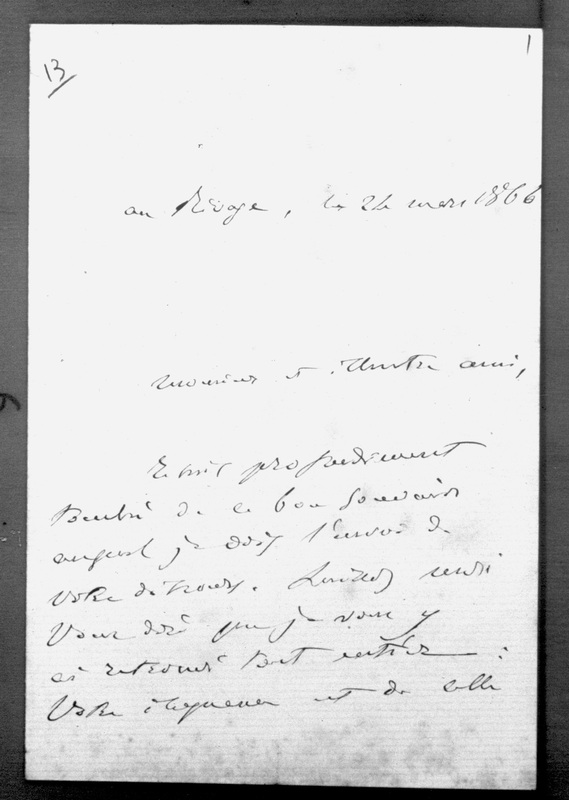 13
1
au Rivage, le 24 mars 1866
Monsieur et illustre ami,
Je suis profondément
touché de ce bon souvenir
auquel je dois l'envoi de
votre discours. Laissez moi
vous dire que je vous y
ai retrouvé tout entier :
Votre éloquence et de celle